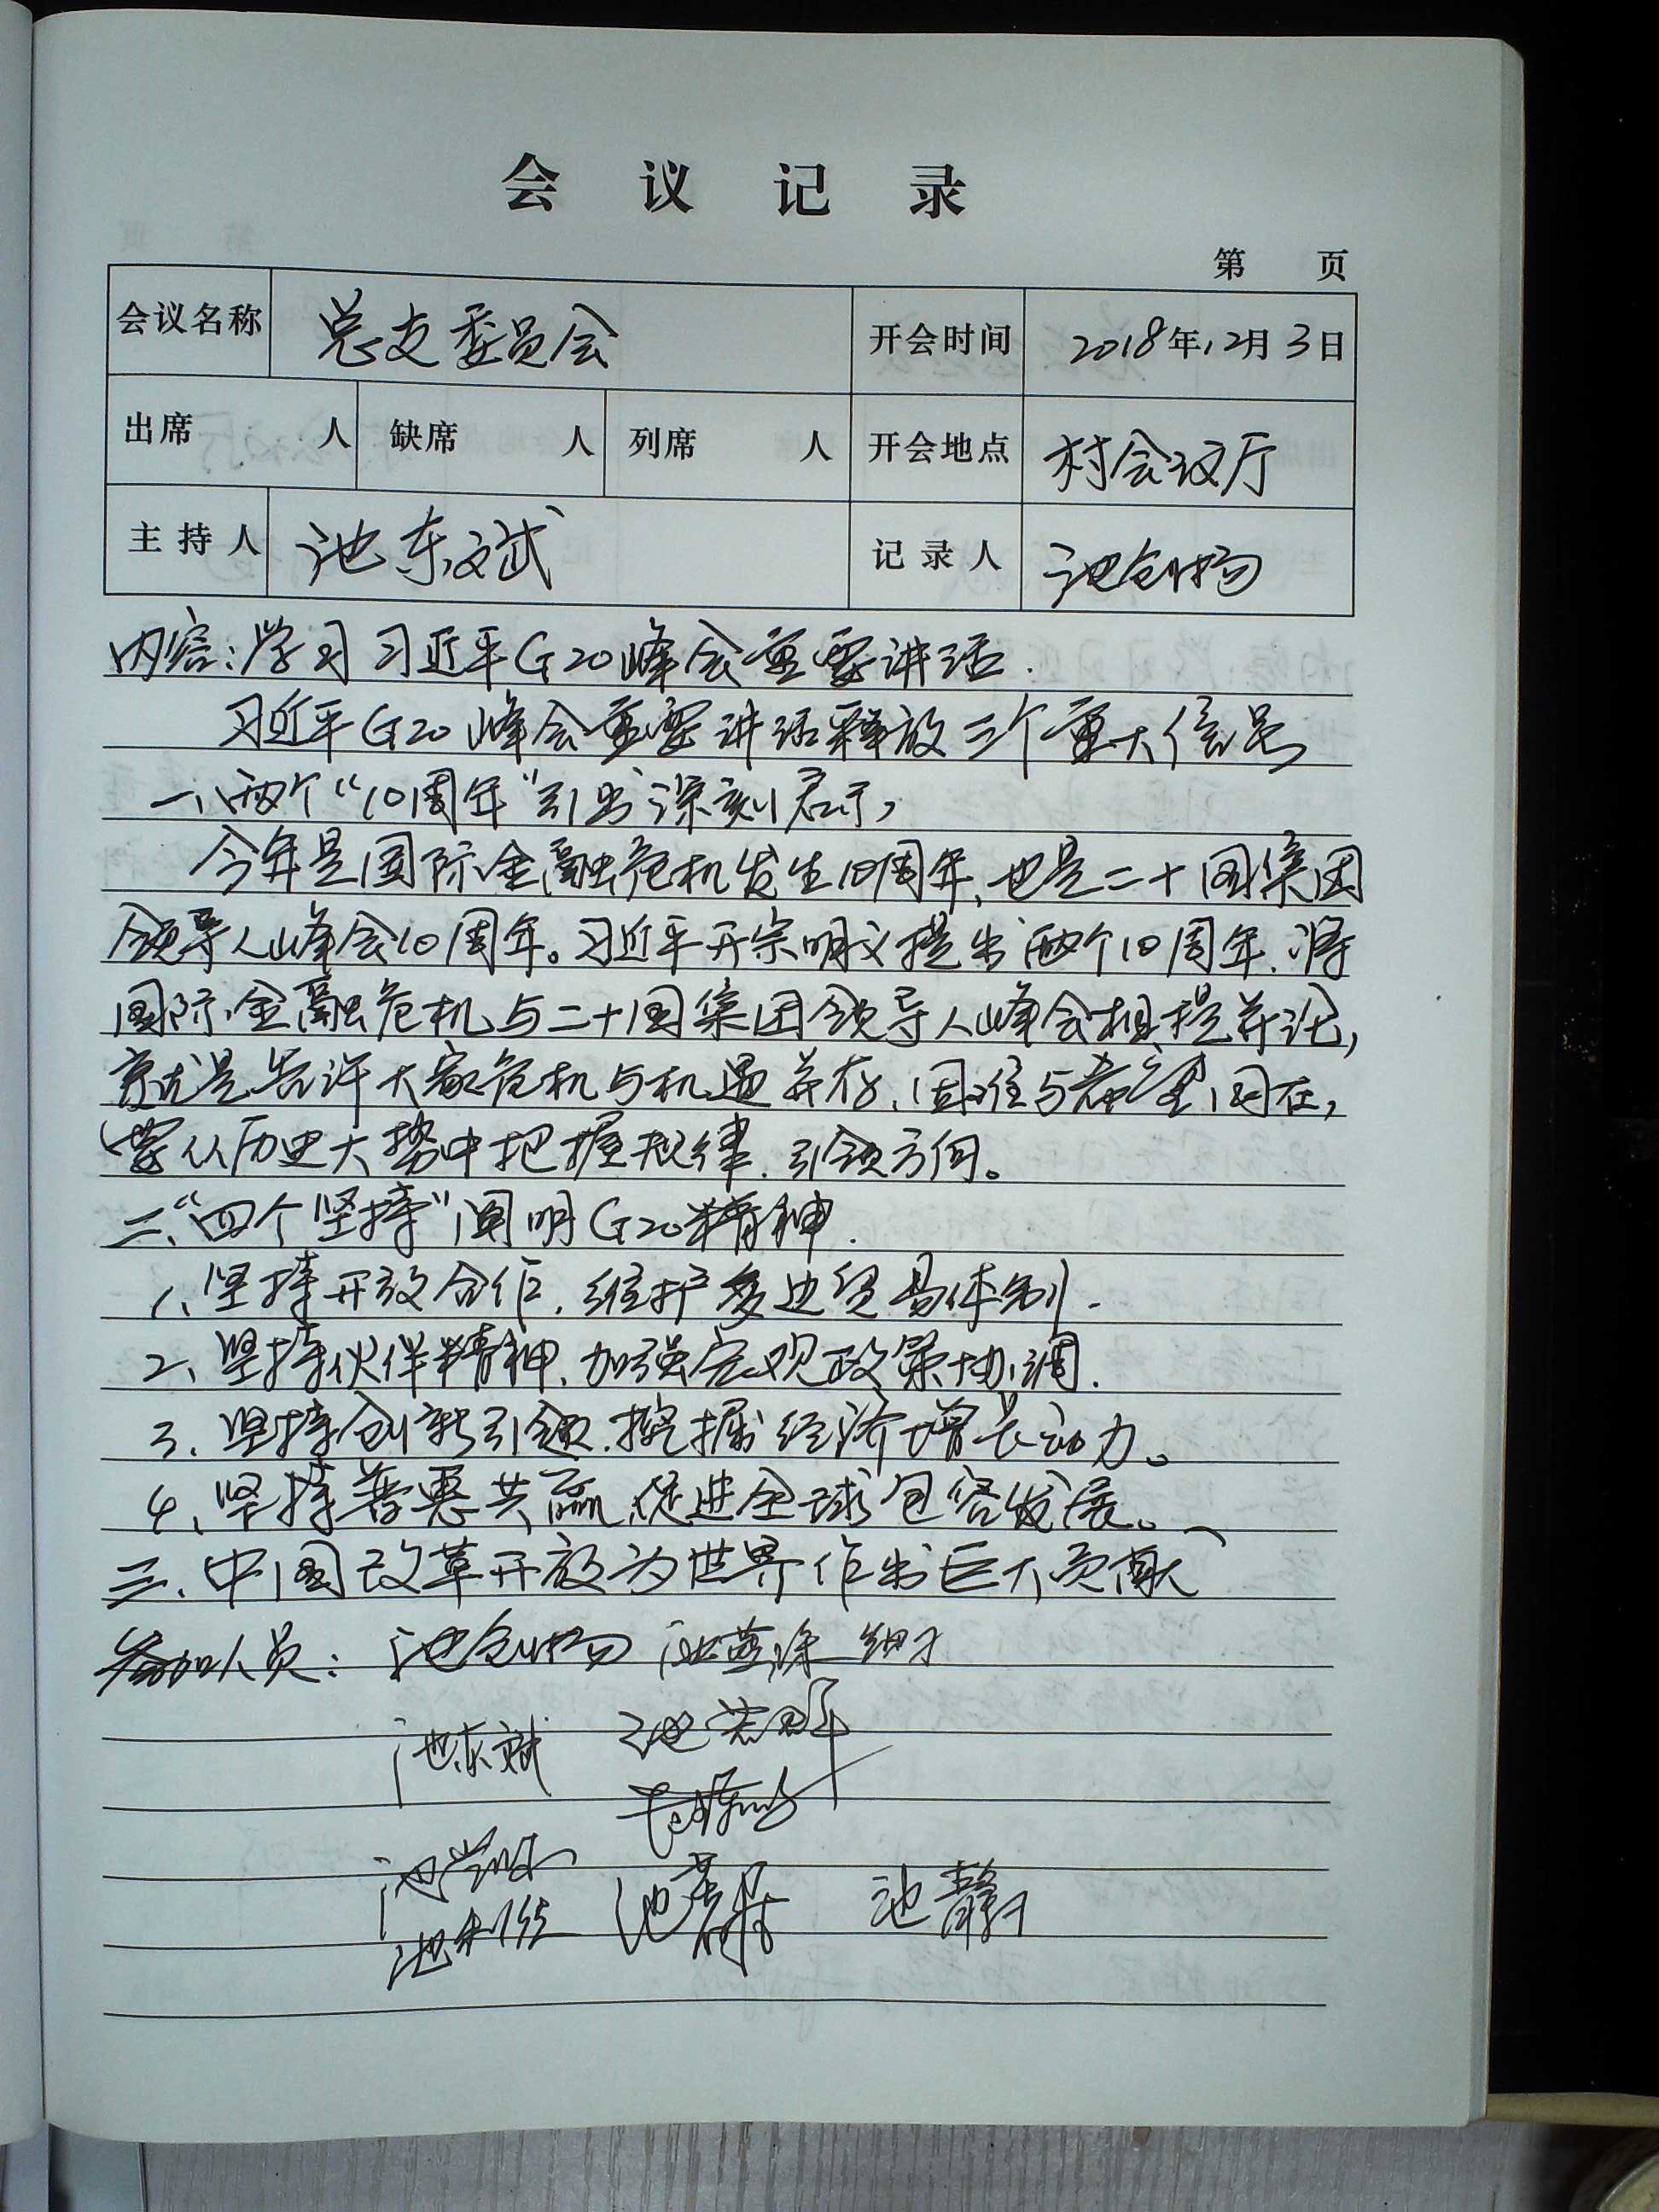 会议记录
第 页
会议名称 总支委员会 开会时间 2018年12月3日
出席 人 缺席 人 列席 人 开会地点 村会议厅
主持人 池东斌 记录人 池创杨
内容:学习习近平G20峰会重要讲话.
习近平G20峰会重要讲话释放三个重大信号
一、两个“10周年”引出深刻启示,
今年是国际金融危机发生10周年,也是二十国集团
领导人峰会10周年。习近平开宗明义提出两个10周年,将
国际金融危机与二十国集团领导人峰会相提并论,
就是告诉大家危机与机遇并存,困难与希望同在,
要从历史大势中把握规律,引领方向。
二、“四个坚持”阐明G20精神.
1、坚持开放合作,维护多边贸易体制.
2、坚持伙伴精神,加强宏观政策协调.
3、坚持创新引领,挖掘经济增长动力。
4、坚持普惠共赢,促进全球包容发展。
三、中国改革开放为世界作出巨大贡献
参加人员: 池创杨
池东斌
池静